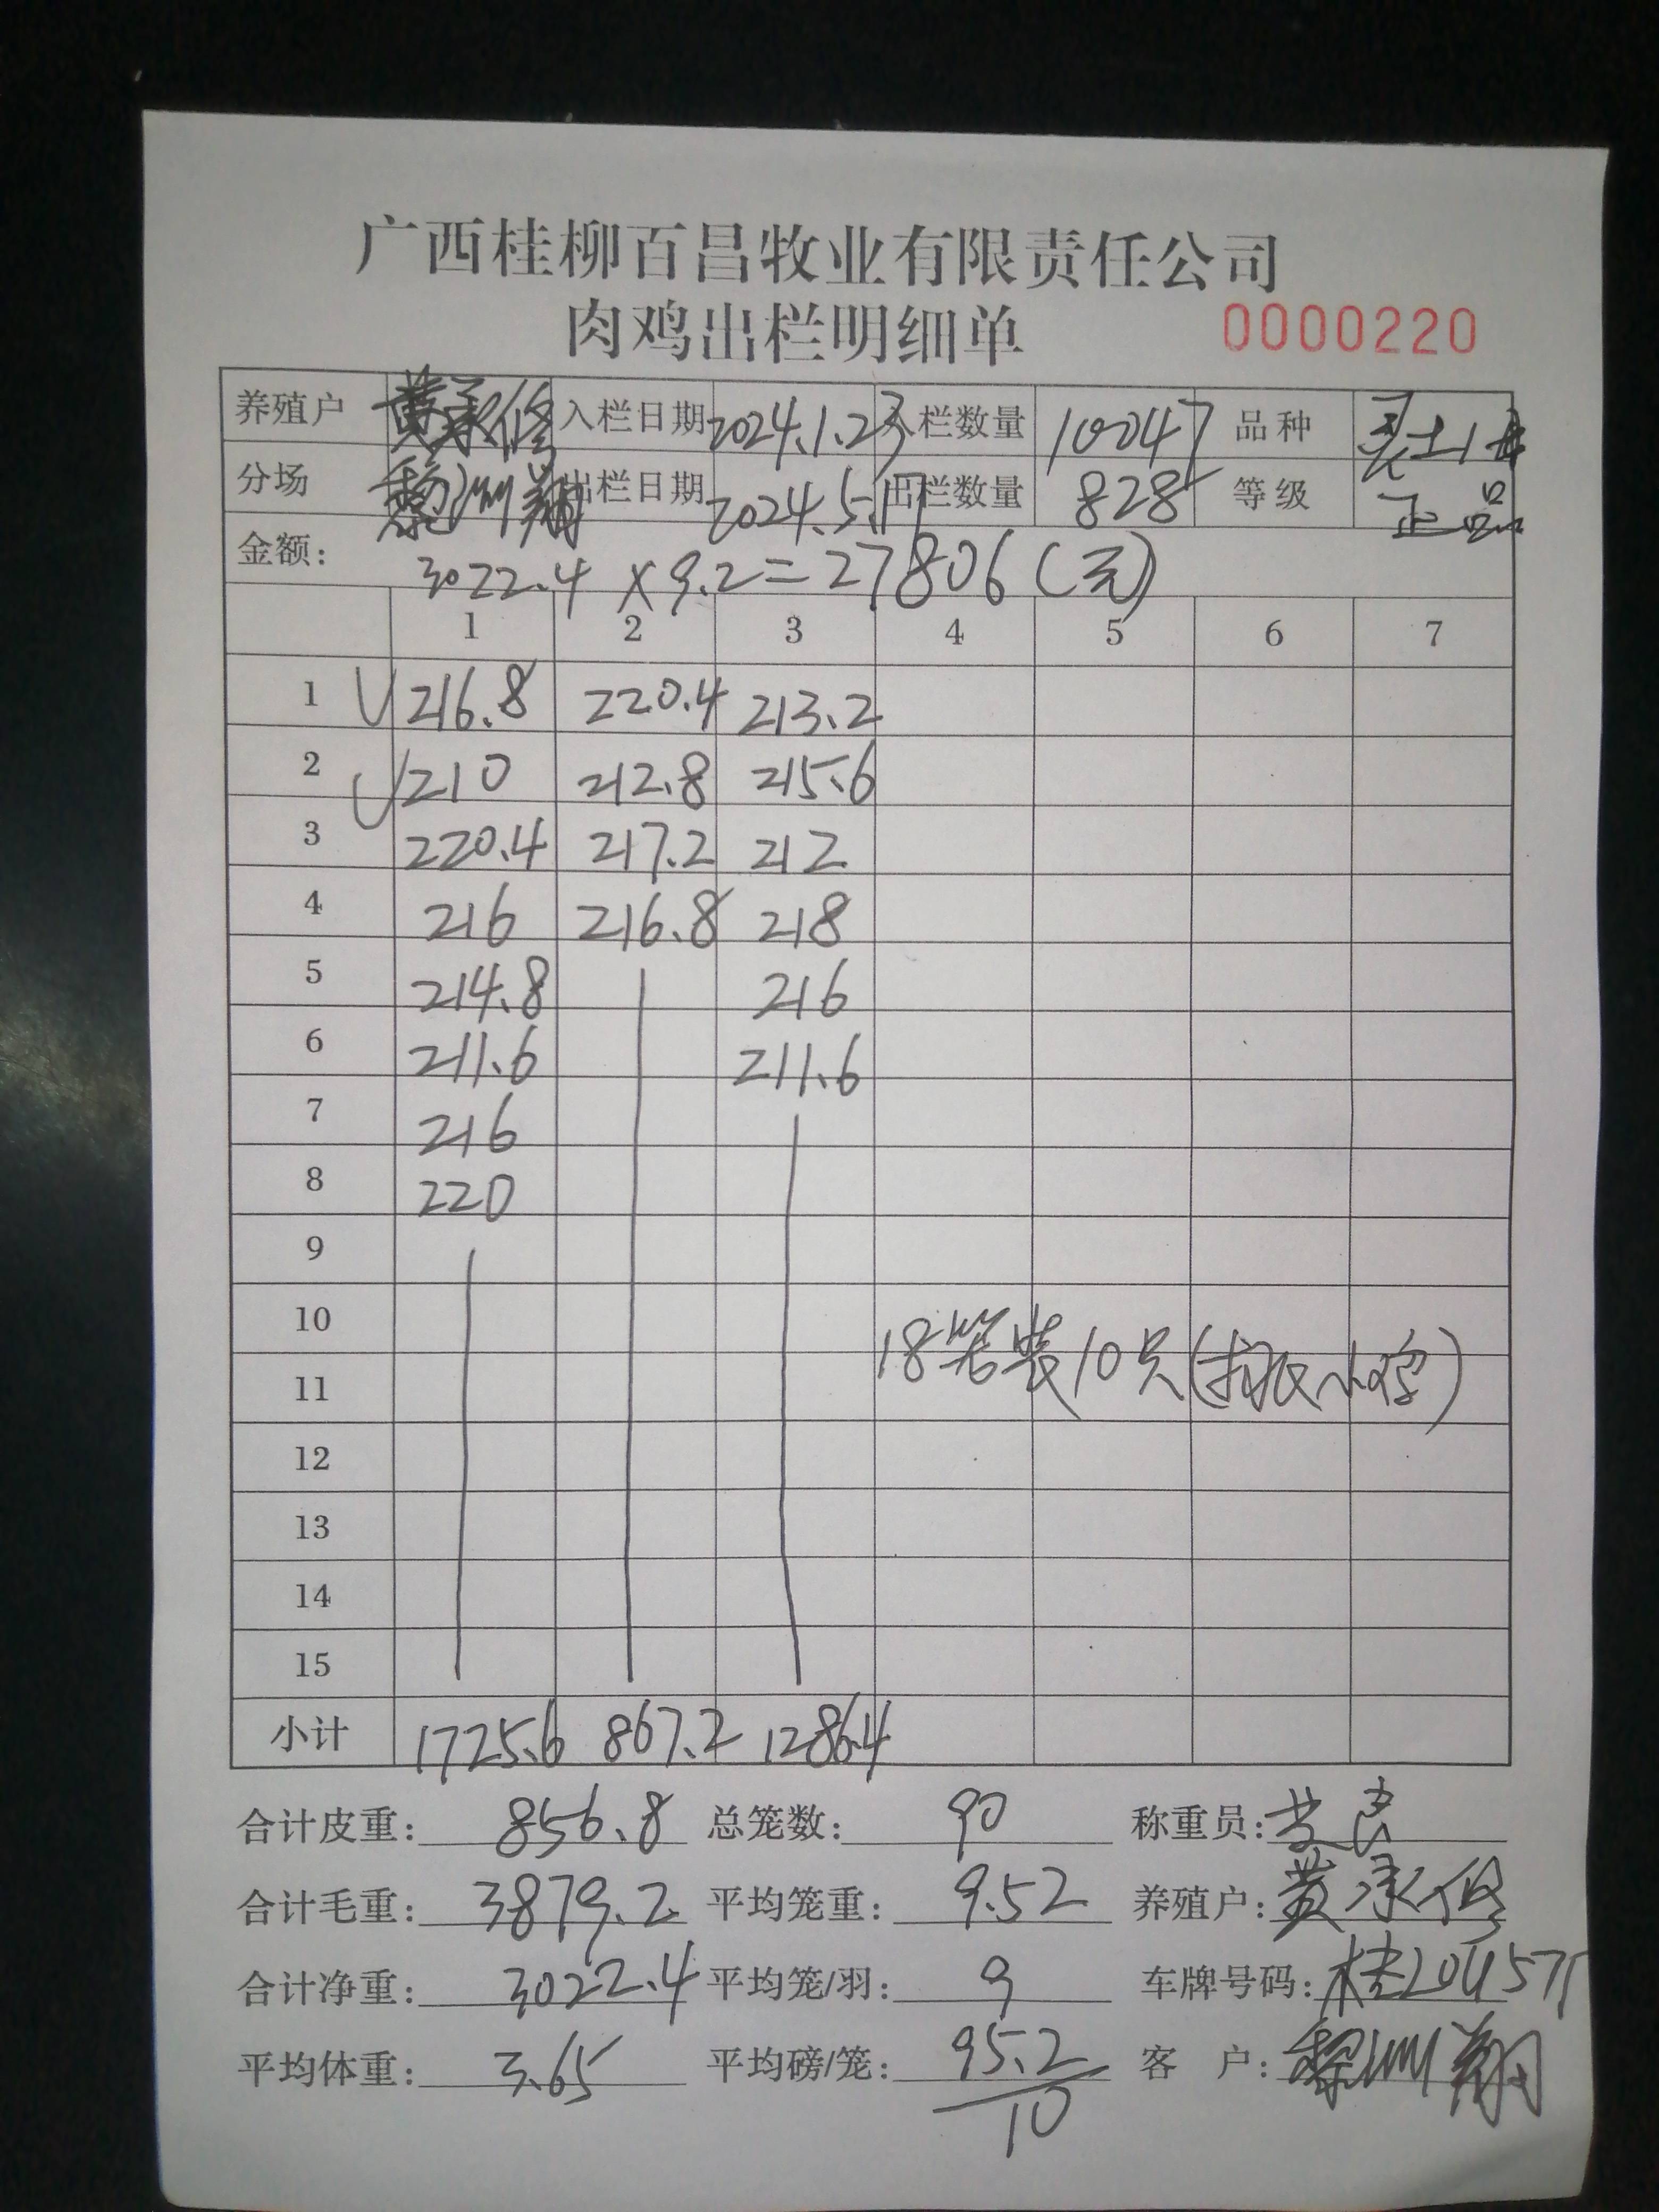 广西桂柳百昌牧业有限责任公司
肉鸡出栏明细单 0000220
养殖户 黄承修 入栏日期 2024.1.23 入栏数量 10047 品种 土1
分场 黎洲翔 出栏日期 2024.5.17 出栏数量 828 等级 正品
金额: 3022.4 × 9.2 = 27806(元)
1 2 3 4 5 6 7
1 216.8 220.4 213.2
2 210 212.8 215.6
3 220.4 217.2 212
4 216 216.8 218
5 214.8 216
6 211.6 211.6
7 216
8 220
9
10
18笼装10只(扣小鸡)
11
12
13
14
15
小计 1725.6 867.2 1286.4
合计皮重: 856.8 总笼数: 90 称重员:
合计毛重: 3879.2 平均笼重: 9.52 养殖户: 黄承修
合计净重: 3022.4 平均笼/羽: 9 车牌号码: 桂
平均体重: 3.65 平均磅/笼: 95.2/10 客 户: 黎洲翔